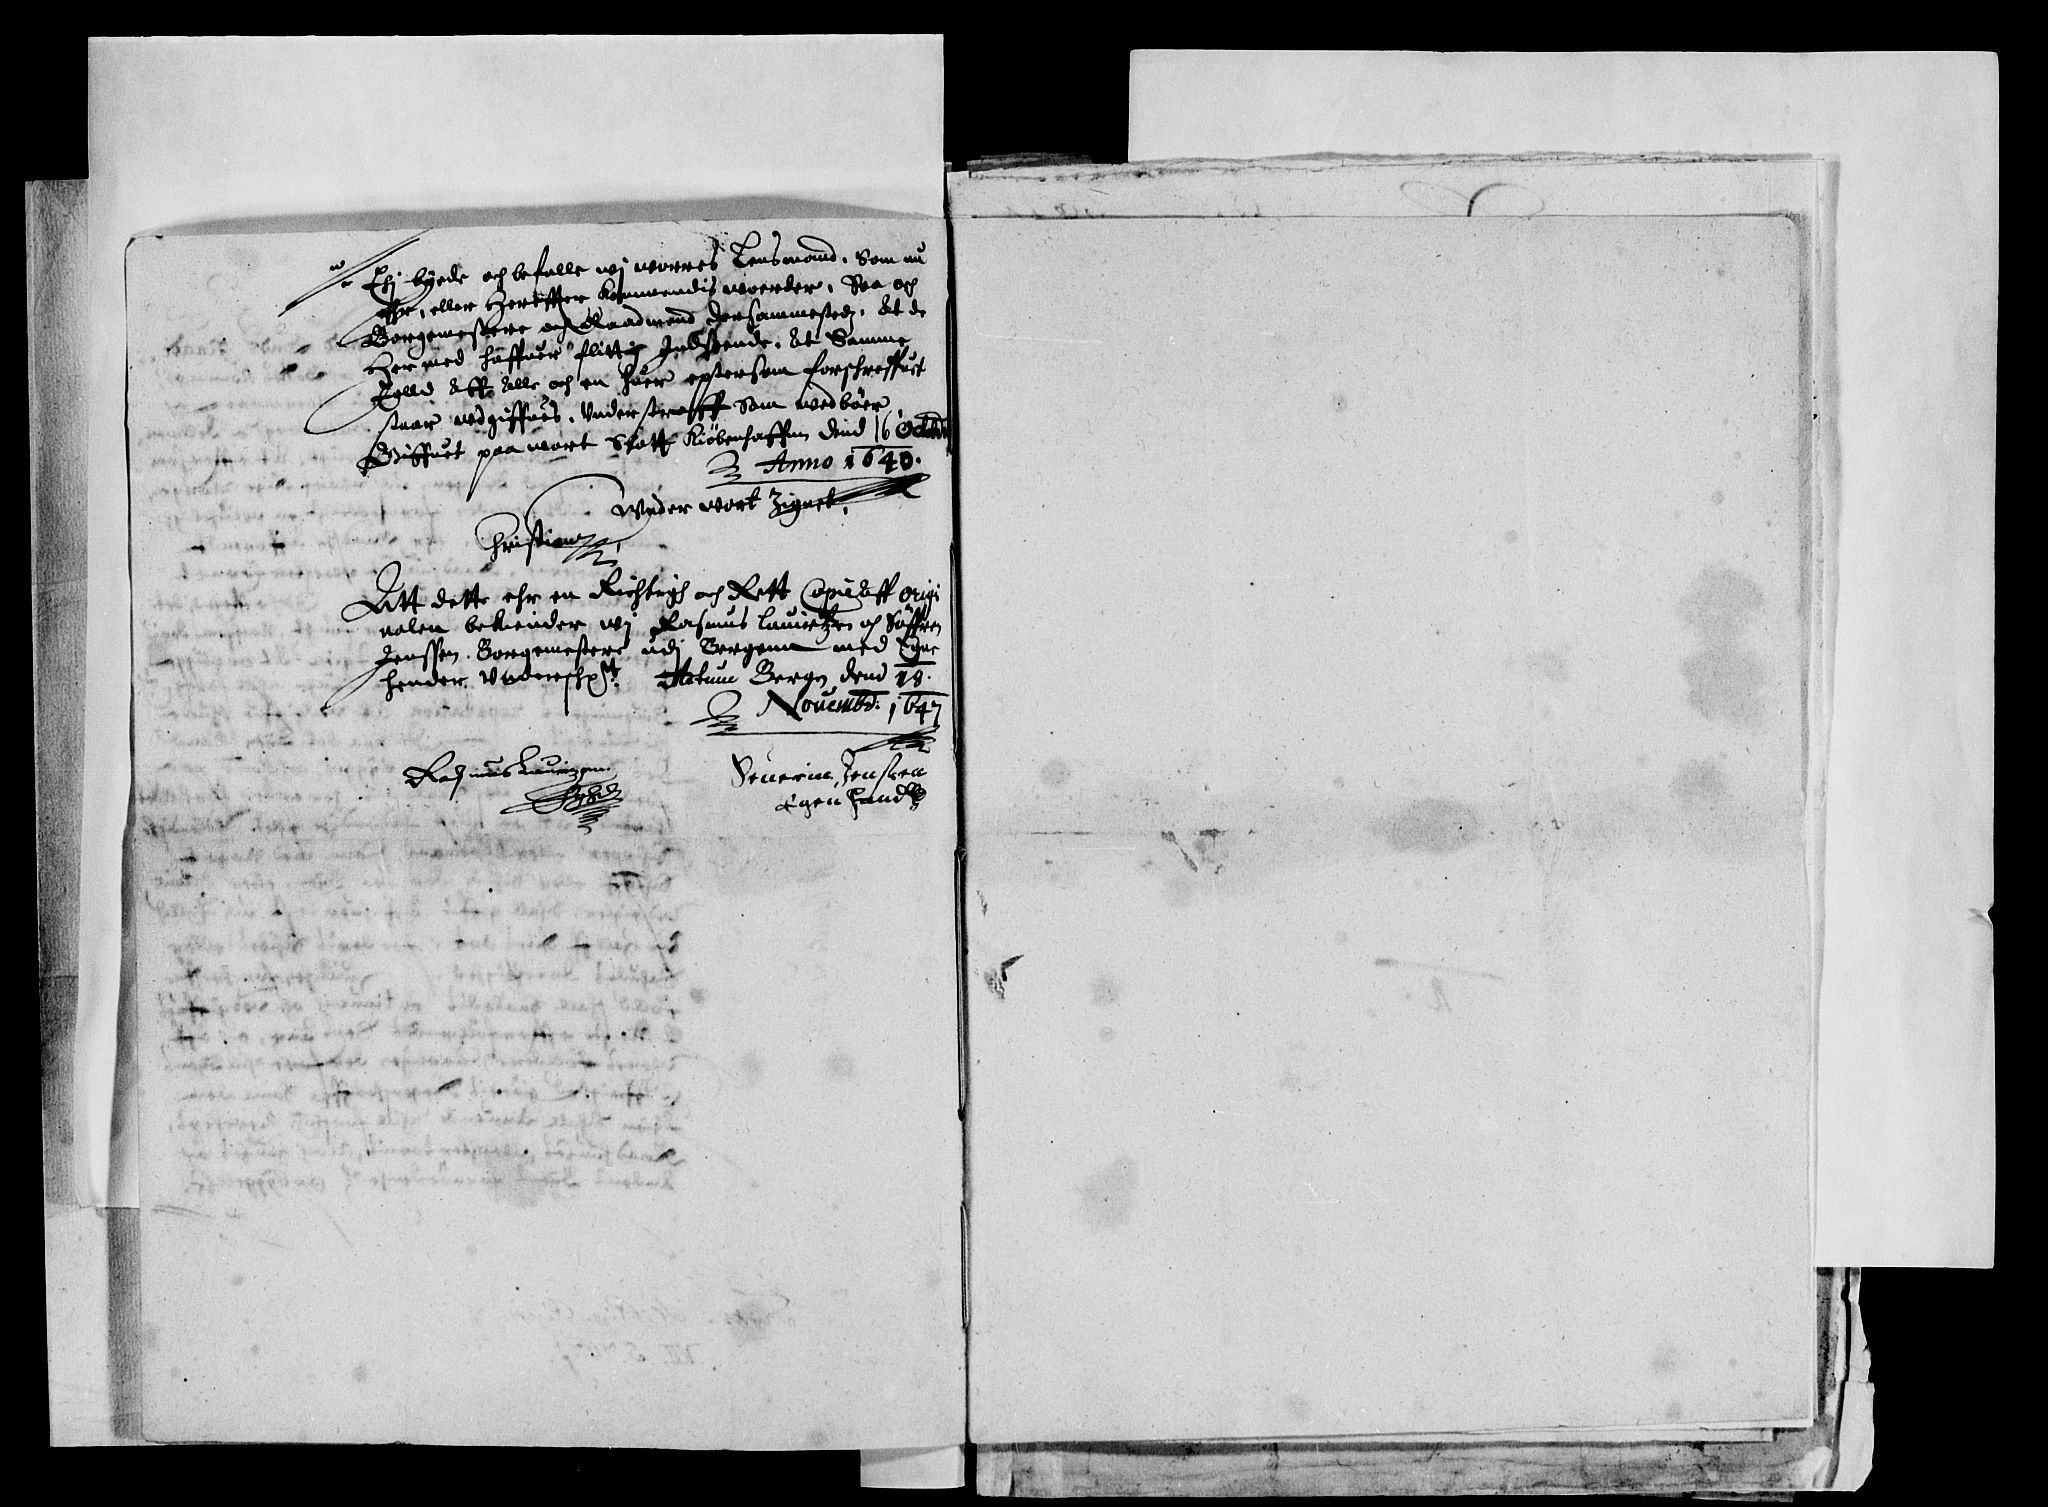 Thj byede och befalle wj worres Lensmand, Som nu
ehr, eller Herefter kommendis worder, Saa och
Borgemestere och Raadmend dersammesteds, At de
Her med haffuer flittig Indseende, At Samme
Told Aff Alle och en huer eptersom forschreffuet
staar udgiffues, Under straff Som wedbør,
Giffuet paa wort Slott Kiøbenhaffnn dend 16 Octob:
Anno 1640.
Wnder wort Zignet,
Christian
Att dette ehr en Richtigh och Rett Copie Aff origi
nalen bekiender wj Rasmus Lauritzen och Søffren
Jenssen Borgemestere udj Bergenn med Egne
hender Underschr: Actum Bergen dend 18.
Nouemb: 1647
Rasmus Lauritzen
Seuerin Jensen
Egen handt